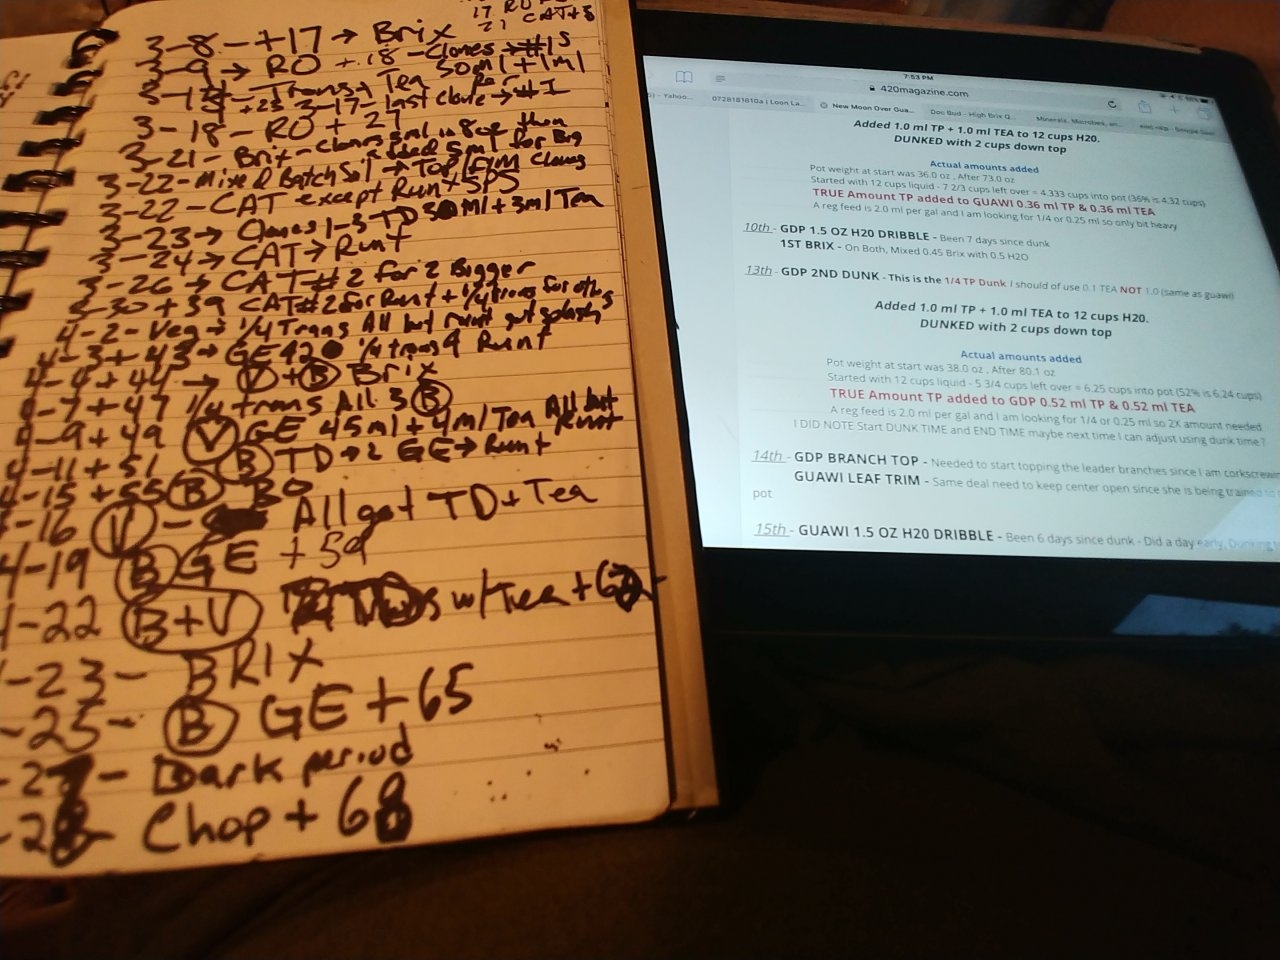 17 RO
21 CAT#3
3-8-+17 → Brix
3-9 → RO + 18 - Clones → #1s
Trans + Tea 50ml + 1ml
+23 3-17 - last clone → #1
3-18 - RO + 27
3-21 - Brix - Clones 3ml in 8oz then
feed 5ml for Big
3-22 - Mixed Batch Soil → Top/FYM Clones
3-22 - CAT except Runt + SPS
3-23 → Clones 1-3 TD 30ml + 3ml Tea
3-24 → CAT → Runt
3-26 → CAT#2 for 2 Bigger
3-30 + 39 CAT#2 for Runt + 1/4 trans for oths
4-2 - Veg → 1/4 Trans All but runt got splash
4-3 + 43 → GE 420 1/4 trans 4 Runt
4-4 + 44 → V + B Brix
4-7 + 47 1/4 trans All 3 B
4-9 + 49 V GE 45ml + 4ml Tea All but Runt
4-11 + 51 B TD → 2 GE → Runt
4-15 + 55 B
4-16 V - All got TD + Tea
4-19 B GE + 59
4-22 B+V w/Tea +
-23- BRIX
-25- B GE + 65
-27- Dark period
-28- Chop + 68
7:53 PM
420magazine.com
Yahoo...
0728181610a | Loon La...
New Moon Over Gua...
Doc Bud - High Brix Q...
Minerals, Microbes, an...
Added 1.0 ml TP + 1.0 ml TEA to 12 cups H20.
DUNKED with 2 cups down top
Actual amounts added
Pot weight at start was 36.0 oz , After 73.0 oz
Started with 12 cups liquid - 7 2/3 cups left over = 4.333 cups into pot (36% is 4.32 cups)
TRUE Amount TP added to GUAWI 0.36 ml TP & 0.36 ml TEA
A reg feed is 2.0 ml per gal and I am looking for 1/4 or 0.25 ml so only bit heavy
10th - GDP 1.5 OZ H20 DRIBBLE - Been 7 days since dunk
1ST BRIX - On Both, Mixed 0.45 Brix with 0.5 H2O
13th - GDP 2ND DUNK - This is the 1/4 TP Dunk I should of use 0.1 TEA NOT 1.0 (same as guawi)
Added 1.0 ml TP + 1.0 ml TEA to 12 cups H20.
DUNKED with 2 cups down top
Actual amounts added
Pot weight at start was 38.0 oz , After 80.1 oz
Started with 12 cups liquid - 5 3/4 cups left over = 6.25 cups into pot (52% is 6.24 cups)
TRUE Amount TP added to GDP 0.52 ml TP & 0.52 ml TEA
A reg feed is 2.0 ml per gal and I am looking for 1/4 or 0.25 ml so 2X amount needed
I DID NOTE Start DUNK TIME and END TIME maybe next time I can adjust using dunk time ?
14th - GDP BRANCH TOP - Needed to start topping the leader branches since I am corkscrewin
GUAWI LEAF TRIM - Same deal need to keep center open since she is being trained to
pot
15th - GUAWI 1.5 OZ H20 DRIBBLE - Been 6 days since dunk - Did a day early, Dunking